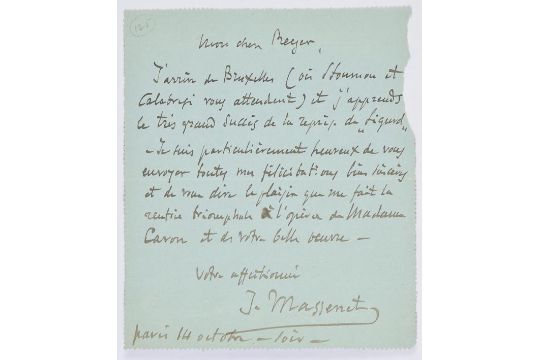 125
Mon cher Reyer,
J'arrive de Bruxelles (où Stoumon et
Calabrési vous attendent) et j'apprends
le très grand succès de la reprise de "Sigurd"
– Je suis particulièrement heureux de vous
envoyer toutes mes félicitations bien sincères
et de vous dire le plaisir que me fait la
rentrée triomphale à l'opéra de Madame
Caron et de votre belle oeuvre –
Votre affectionné
J. Massenet
Paris 14 octobre – soir –